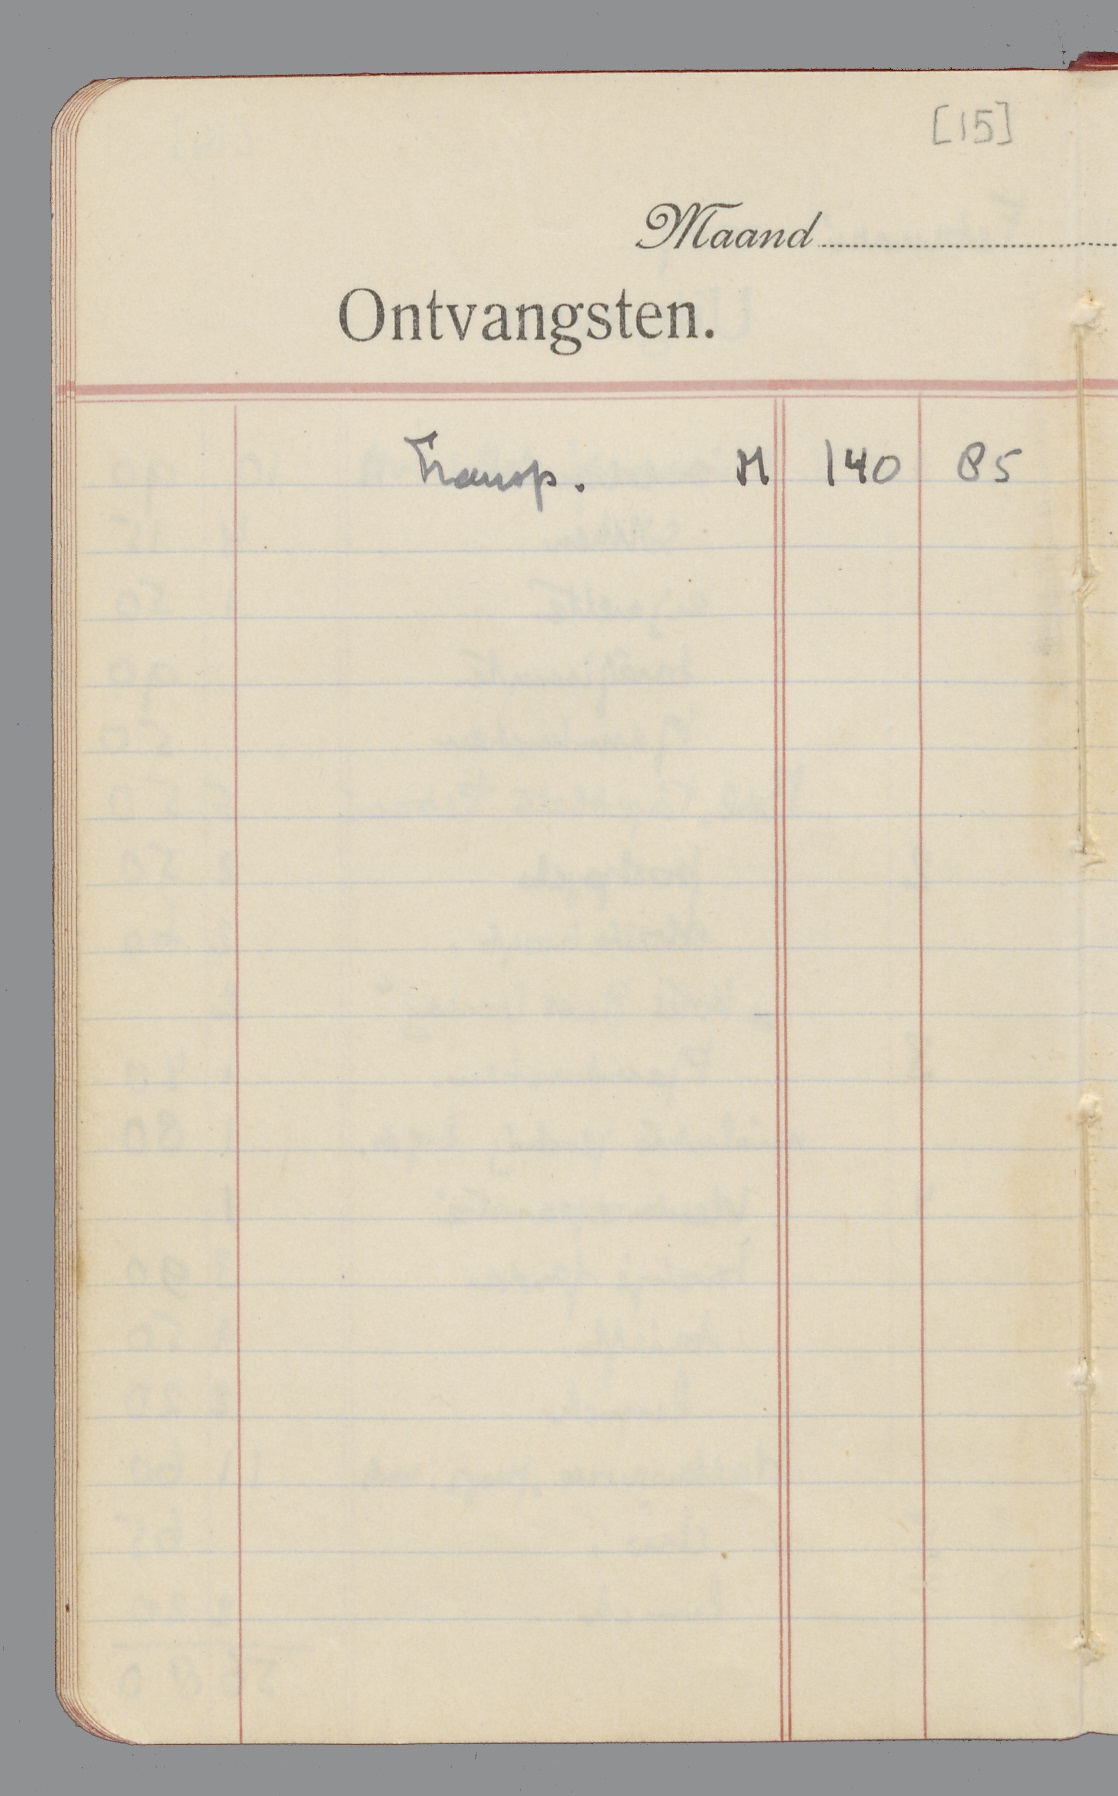 [15]
Maand
Ontvangsten.
Transp. M 140 85